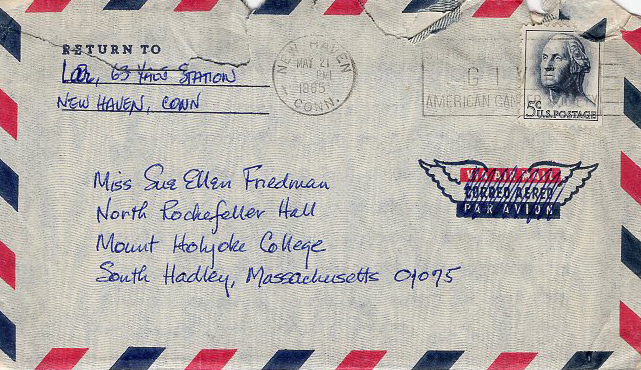 RETURN TO
63 YALE STATION
NEW HAVEN, CONN
NEW HAVEN
MAY 21
PM
1965
CONN.
AMERICAN
5¢
U.S. POSTAGE
VIA AIR MAIL
CORREO AEREO
PAR AVION
Miss Sue Ellen Friedman
North Rockefeller Hall
Mount Holyoke College
South Hadley, Massachusetts 01075